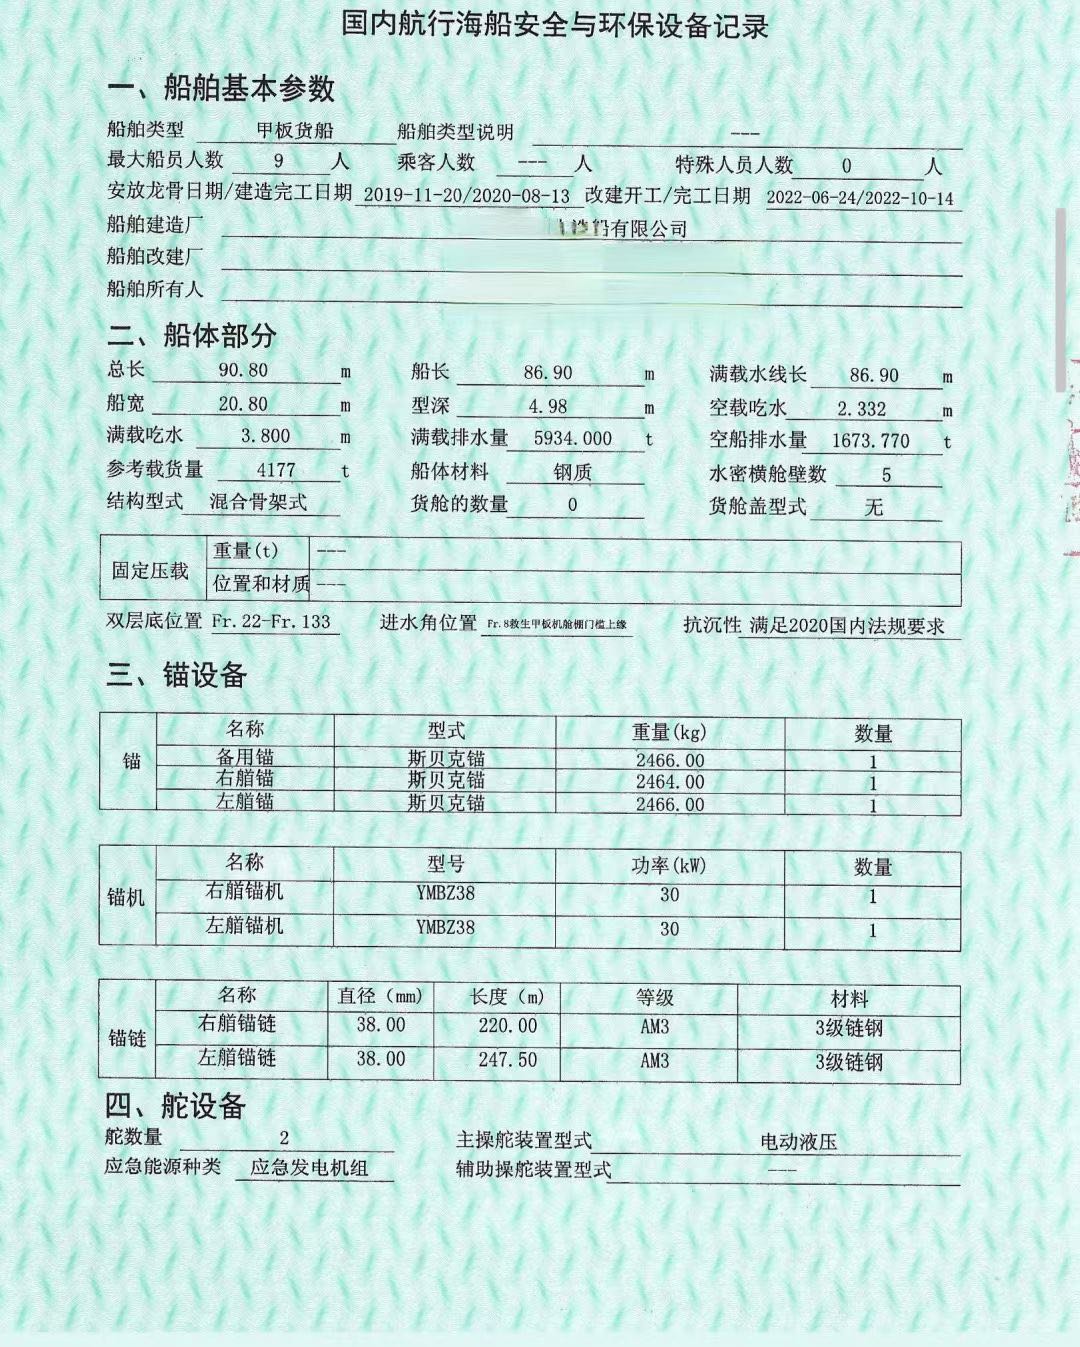 国内航行海船安全与环保设备记录
一、船舶基本参数
船舶类型 甲板货船 船舶类型说明 ---
最大船员人数 9 人 乘客人数 --- 人 特殊人员人数 0 人
安放龙骨日期/建造完工日期 2019-11-20/2020-08-13 改建开工/完工日期 2022-06-24/2022-10-14
船舶建造厂 船有限公司
船舶改建厂
船舶所有人
二、船体部分
总长 90.80 m 船长 86.90 m 满载水线长 86.90 m
船宽 20.80 m 型深 4.98 m 空载吃水 2.332 m
满载吃水 3.800 m 满载排水量 5934.000 t 空船排水量 1673.770 t
参考载货量 4177 t 船体材料 钢质 水密横舱壁数 5
结构型式 混合骨架式 货舱的数量 0 货舱盖型式 无
固定压载 重量(t) ---
位置和材质 ---
双层底位置 Fr.22-Fr.133 进水角位置 Fr.8救生甲板机舱棚门槛上缘 抗沉性 满足2020国内法规要求
三、锚设备
锚 名称 型式 重量(kg) 数量
备用锚 斯贝克锚 2466.00 1
右艏锚 斯贝克锚 2464.00 1
左艏锚 斯贝克锚 2466.00 1
锚机 名称 型号 功率(kW) 数量
右艏锚机 YMBZ38 30 1
左艏锚机 YMBZ38 30 1
锚链 名称 直径（mm） 长度（m） 等级 材料
右艏锚链 38.00 220.00 AM3 3级链钢
左艏锚链 38.00 247.50 AM3 3级链钢
四、舵设备
舵数量 2 主操舵装置型式 电动液压
应急能源种类 应急发电机组 辅助操舵装置型式 ---